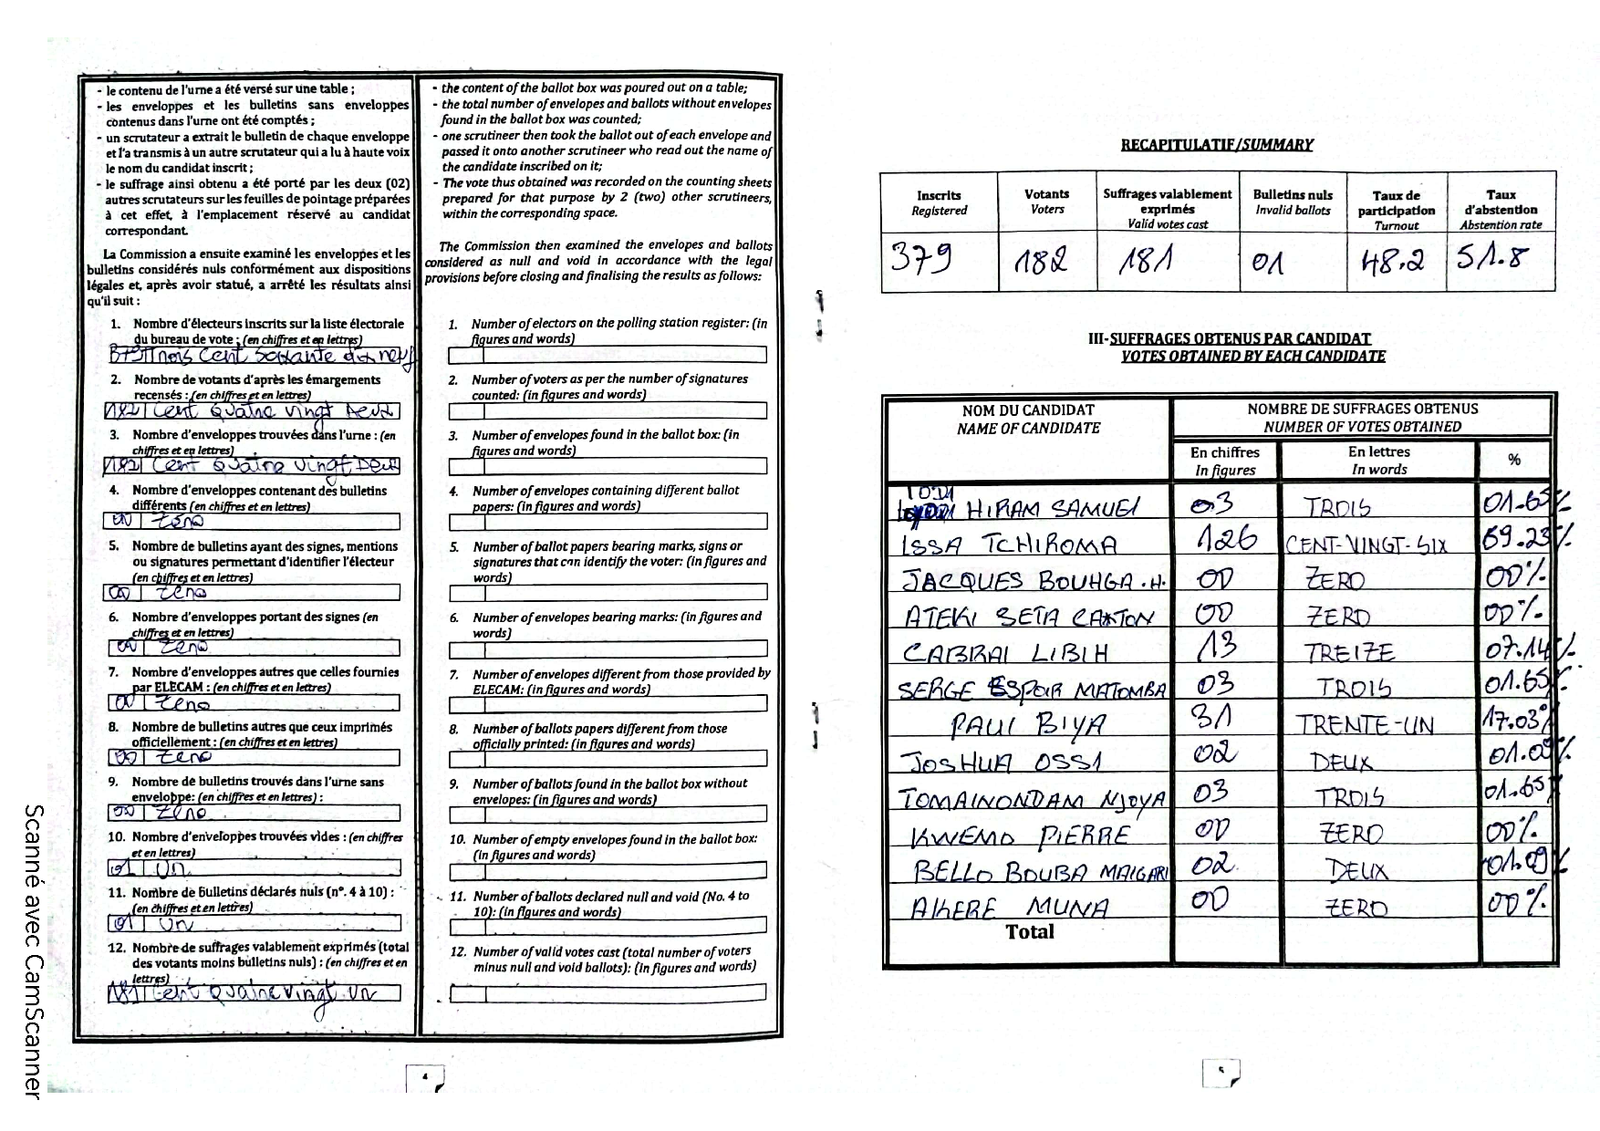 - le contenu de l'urne a été versé sur une table ;
- les enveloppes et les bulletins sans enveloppes
contenus dans l'urne ont été comptés ;
- un scrutateur a extrait le bulletin de chaque enveloppe
et l'a transmis à un autre scrutateur qui a lu à haute voix
le nom du candidat inscrit ;
- le suffrage ainsi obtenu a été porté par les deux (02)
autres scrutateurs sur les feuilles de pointage préparées
à cet effet, à l'emplacement réservé au candidat
correspondant.
La Commission a ensuite examiné les enveloppes et les
bulletins considérés nuls conformément aux dispositions
légales et, après avoir statué, a arrêté les résultats ainsi
qu'il suit :
1. Nombre d'électeurs inscrits sur la liste électorale
du bureau de vote : (en chiffres et en lettres)
379 Trois Cent Soixante dix neuf
2. Nombre de votants d'après les émargements
recensés : (en chiffres et en lettres)
182 Cent Quatre vingt Deux
3. Nombre d'enveloppes trouvées dans l'urne : (en
chiffres et en lettres)
182 Cent Quatre vingt Deux
4. Nombre d'enveloppes contenant des bulletins
différents (en chiffres et en lettres)
00 Zéro
5. Nombre de bulletins ayant des signes, mentions
ou signatures permettant d'identifier l'électeur
(en chiffres et en lettres)
00 Zéro
6. Nombre d'enveloppes portant des signes (en
chiffres et en lettres)
00 Zéro
7. Nombre d'enveloppes autres que celles fournies
par ELECAM : (en chiffres et en lettres)
00 Zéro
8. Nombre de bulletins autres que ceux imprimés
officiellement : (en chiffres et en lettres)
00 Zéro
9. Nombre de bulletins trouvés dans l'urne sans
enveloppe: (en chiffres et en lettres) :
00 Zéro
10. Nombre d'enveloppes trouvées vides : (en chiffres
et en lettres)
01 Un
11. Nombre de Bulletins déclarés nuls (n°. 4 à 10) :
(en chiffres et en lettres)
01 Un
12. Nombre de suffrages valablement exprimés (total
des votants moins bulletins nuls) : (en chiffres et en
lettres)
181 Cent Quatre vingt Un
- the content of the ballot box was poured out on a table;
- the total number of envelopes and ballots without envelopes
found in the ballot box was counted;
- one scrutineer then took the ballot out of each envelope and
passed it onto another scrutineer who read out the name of
the candidate inscribed on it;
- The vote thus obtained was recorded on the counting sheets
prepared for that purpose by 2 (two) other scrutineers,
within the corresponding space.
The Commission then examined the envelopes and ballots
considered as null and void in accordance with the legal
provisions before closing and finalising the results as follows:
1. Number of electors on the polling station register: (in
figures and words)
2. Number of voters as per the number of signatures
counted: (in figures and words)
3. Number of envelopes found in the ballot box: (in
figures and words)
4. Number of envelopes containing different ballot
papers: (in figures and words)
5. Number of ballot papers bearing marks, signs or
signatures that can identify the voter: (in figures and
words)
6. Number of envelopes bearing marks: (in figures and
words)
7. Number of envelopes different from those provided by
ELECAM: (in figures and words)
8. Number of ballots papers different from those
officially printed: (in figures and words)
9. Number of ballots found in the ballot box without
envelopes: (in figures and words)
10. Number of empty envelopes found in the ballot box:
(in figures and words)
11. Number of ballots declared null and void (No. 4 to
10): (in figures and words)
12. Number of valid votes cast (total number of voters
minus null and void ballots): (in figures and words)
4
RECAPITULATIF/SUMMARY
Inscrits Registered
Votants Voters
Suffrages valablement exprimés Valid votes cast
Bulletins nuls Invalid ballots
Taux de participation Turnout
Taux d'abstention Abstention rate
379 182 181 01 48.2 51.8
III-SUFFRAGES OBTENUS PAR CANDIDAT
VOTES OBTAINED BY EACH CANDIDATE
NOM DU CANDIDAT
NAME OF CANDIDATE
NOMBRE DE SUFFRAGES OBTENUS
NUMBER OF VOTES OBTAINED
En chiffres In figures
En lettres In words
%
IODI HIRAM SAMUEL 03 TROIS 01.65%
ISSA TCHIROMA 126 CENT-VINGT-SIX 69.23%
JACQUES BOUHGA.H. 00 ZERO 00%
ATEKI SETA CAXTON 00 ZERO 00%
CABRAL LIBIH 13 TREIZE 07.14%
SERGE ESPOIR MATOMBA 03 TROIS 01.65%
PAUL BIYA 31 TRENTE-UN 17.03%
JOSHUA OSSI 02 DEUX 01.09%
TOMAINONDAM NJOYA 03 TROIS 01.65%
KWEMO PIERRE 00 ZERO 00%
BELLO BOUBA MAIGARI 02 DEUX 01.09%
AKERE MUNA 00 ZERO 00%
Total
5
Scanné avec CamScanner